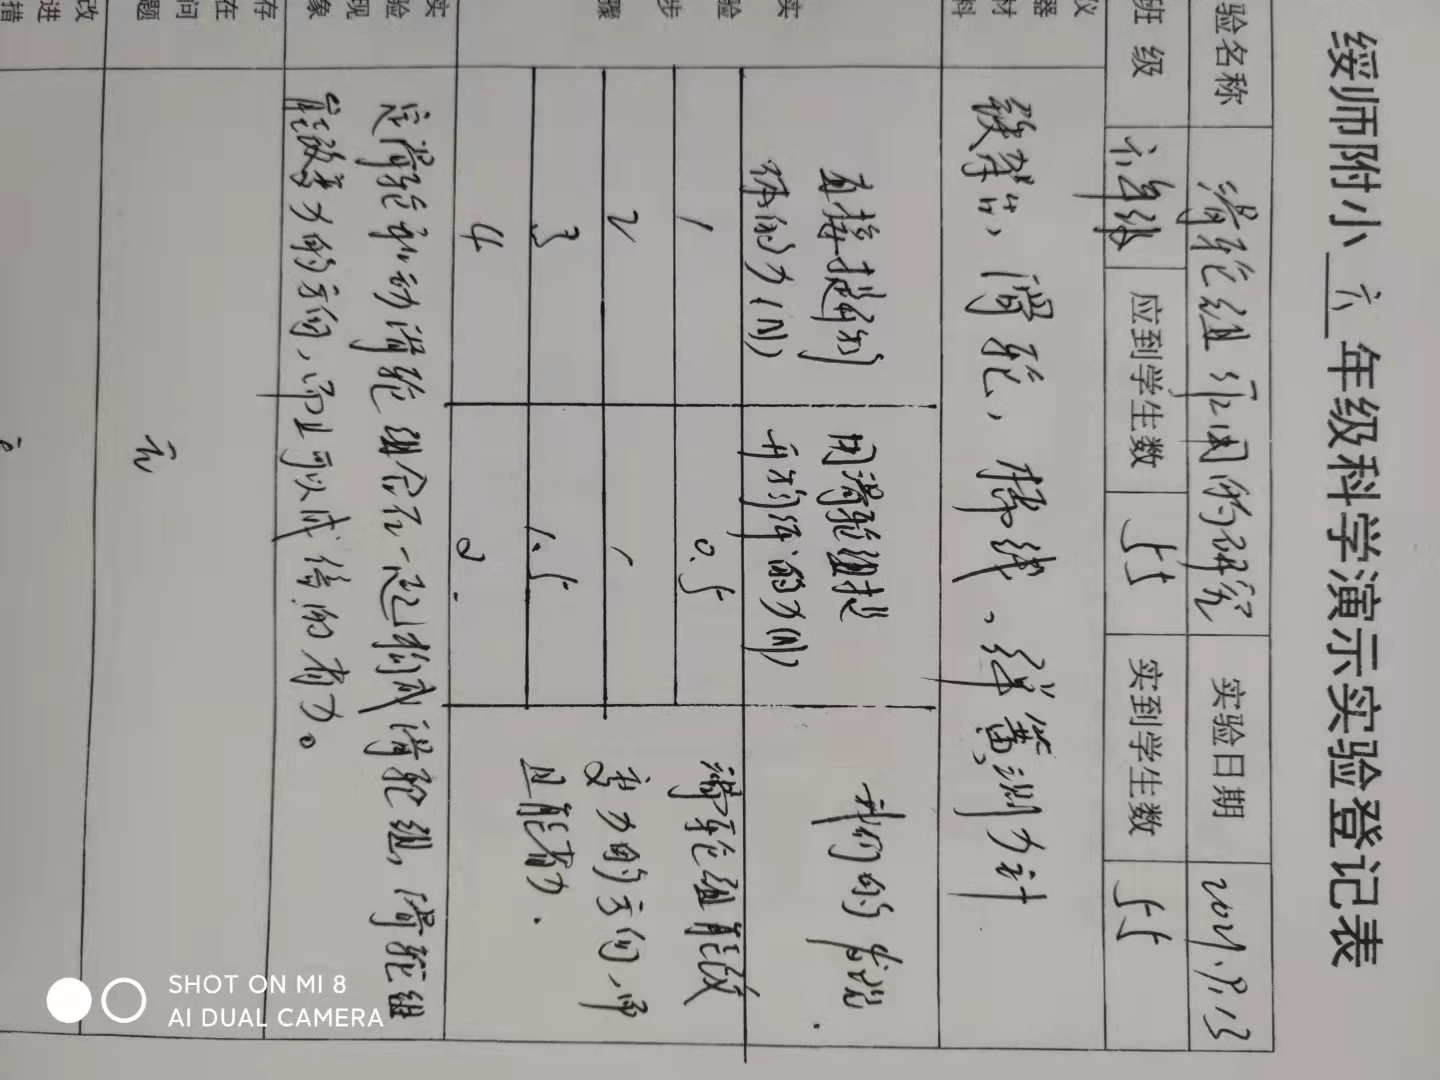 绥师附小 六 年级科学演示实验登记表
验名称 滑轮组作用的研究 实验日期 2021.9.13
班 级 六年级 应到学生数 55 实到学生数 55
仪器材料 铁架台,滑轮,棉线、弹簧测力计
实验步骤
直接提升物体的力(N) 用滑轮组提升物体的力(N) 我们的发现
1 0.5 滑轮组能改
2 1 变力的方向,
3 1.5 且能省力.
4 2.
实验现象
定滑轮和动滑轮组合在一起构成滑轮组,滑轮组
能改变力的方向,而且可以成倍的省力。
存在问题 无
改进措
SHOT ON MI 8
AI DUAL CAMERA